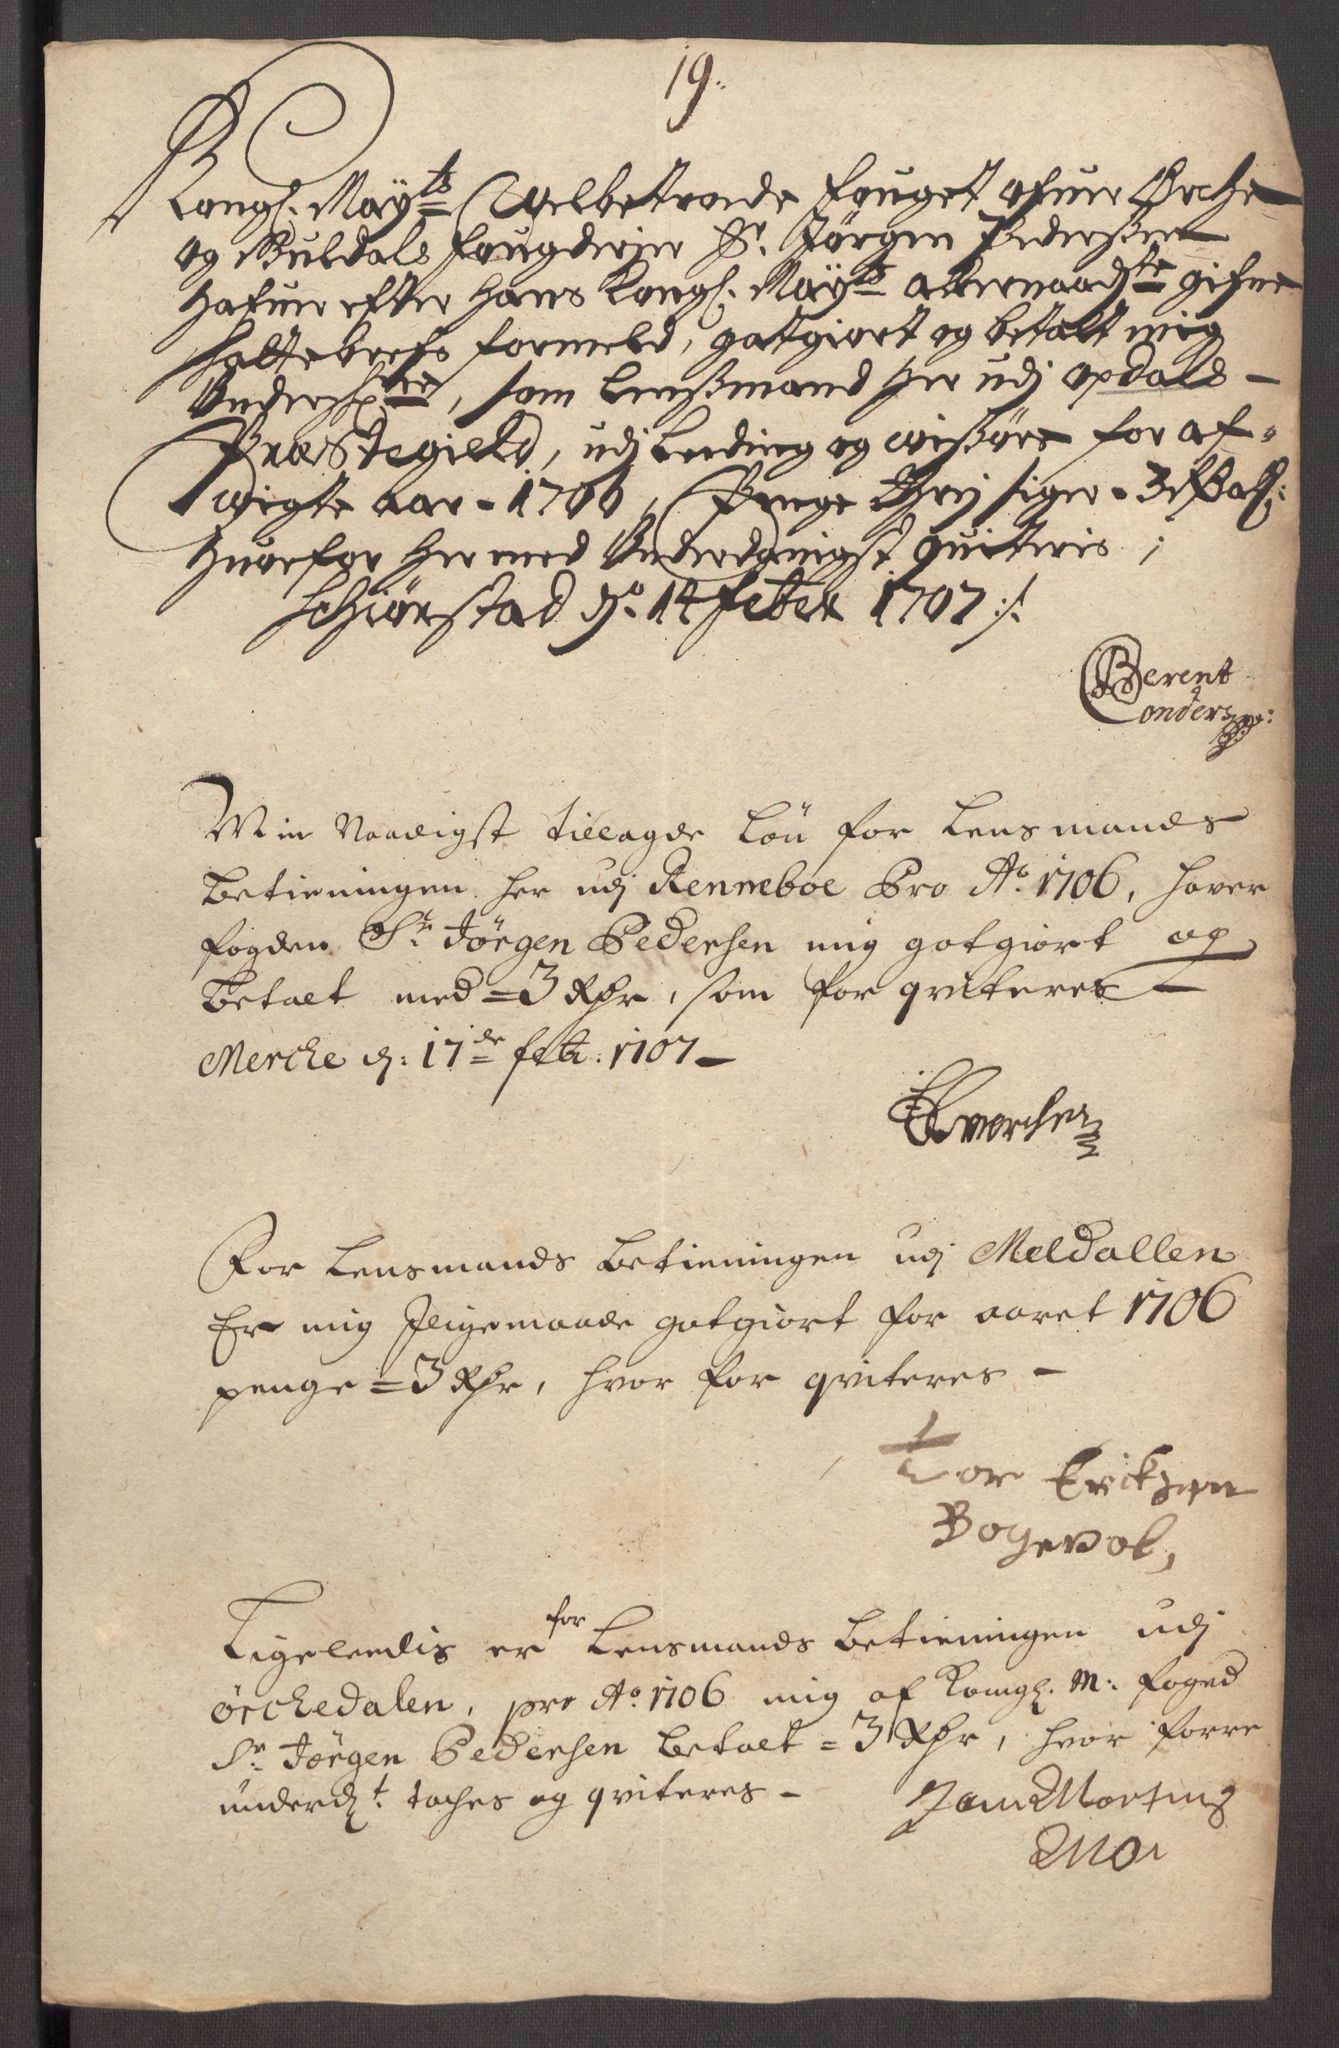 19.
Kongl. Mayts Velbetroede fouget ofuer Orche
og Guldals fougderier Sr. Jørgen Pederssen
hafuer efter hans Kongl. Mayts allernaadste gifne
 formeld, gotgiort og betalt mig
Undersch, som Lenssmand her udj Opdals
Præstegield, udj Leding og for af-
vigte aar - 1706, Penge Threj siger - 3
huorfor her med Underdanigst quiteris;
 do. 14 febr 1707
Berent
Min Naadigst tillagde Løn for Lensmands
betieningen her udj Renneboe Pro Ao. 1706, haver
fogden Sr. Jørgen Pedersen mig gotgiort og
betalt med = 3 Rdr, som for qviteres
Merche d: 17de feb: 1707
For Lensmands betieningen udj Meldallen
Er mig Jligemaade gotgiort for aaret 1706
penge = 3 Rdr, hvor for qviteres -
Tor Ericksen
Bogevol,
Ligeledis er for Lensmands betieningen udj
Orchedalen, pro Ao. 1706 mig af Kongl. M: foged
Sr. Jørgen Pedersen betalt = 3 Rdr, hvor forre
underdt. taches og qviteres -
Jon Mortens
Mo